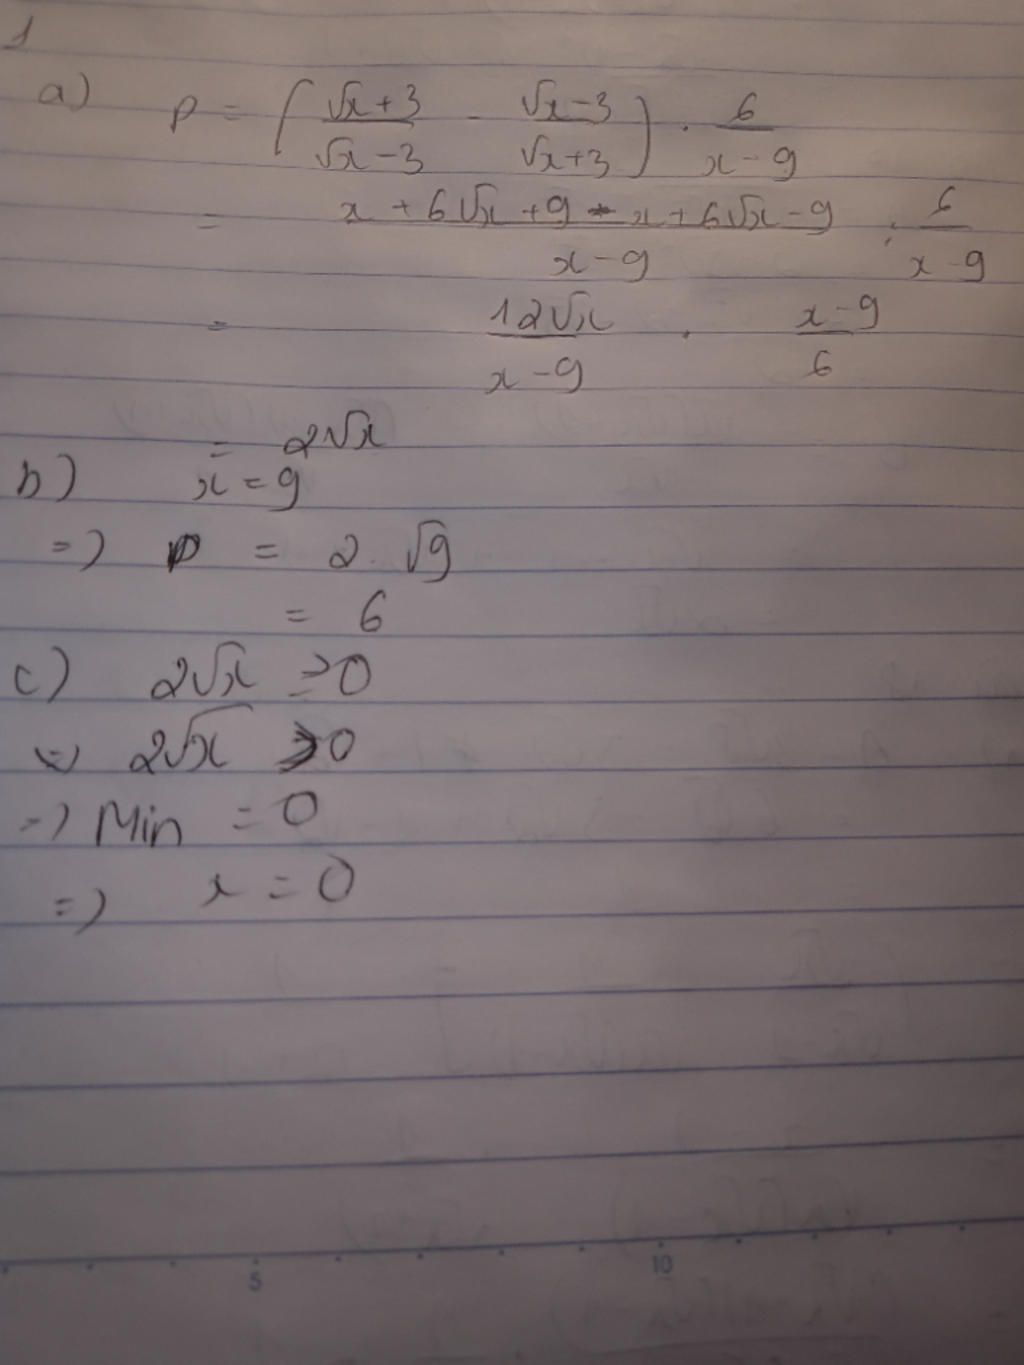 1
a) P = ( (√x+3)/(√x-3) - (√x-3)/(√x+3) ) . 6/(x-9)
= (x+6√x+9-x+6√x-9)/(x-9) : 6/(x-9)
= 12√x/(x-9) . (x-9)/6
= 2√x
b) x = 9
=) P = 2.√9
= 6
c) 2√x ≥ 0
=) 2√x ≥ 0
=) Min = 0
=) x = 0
5 10